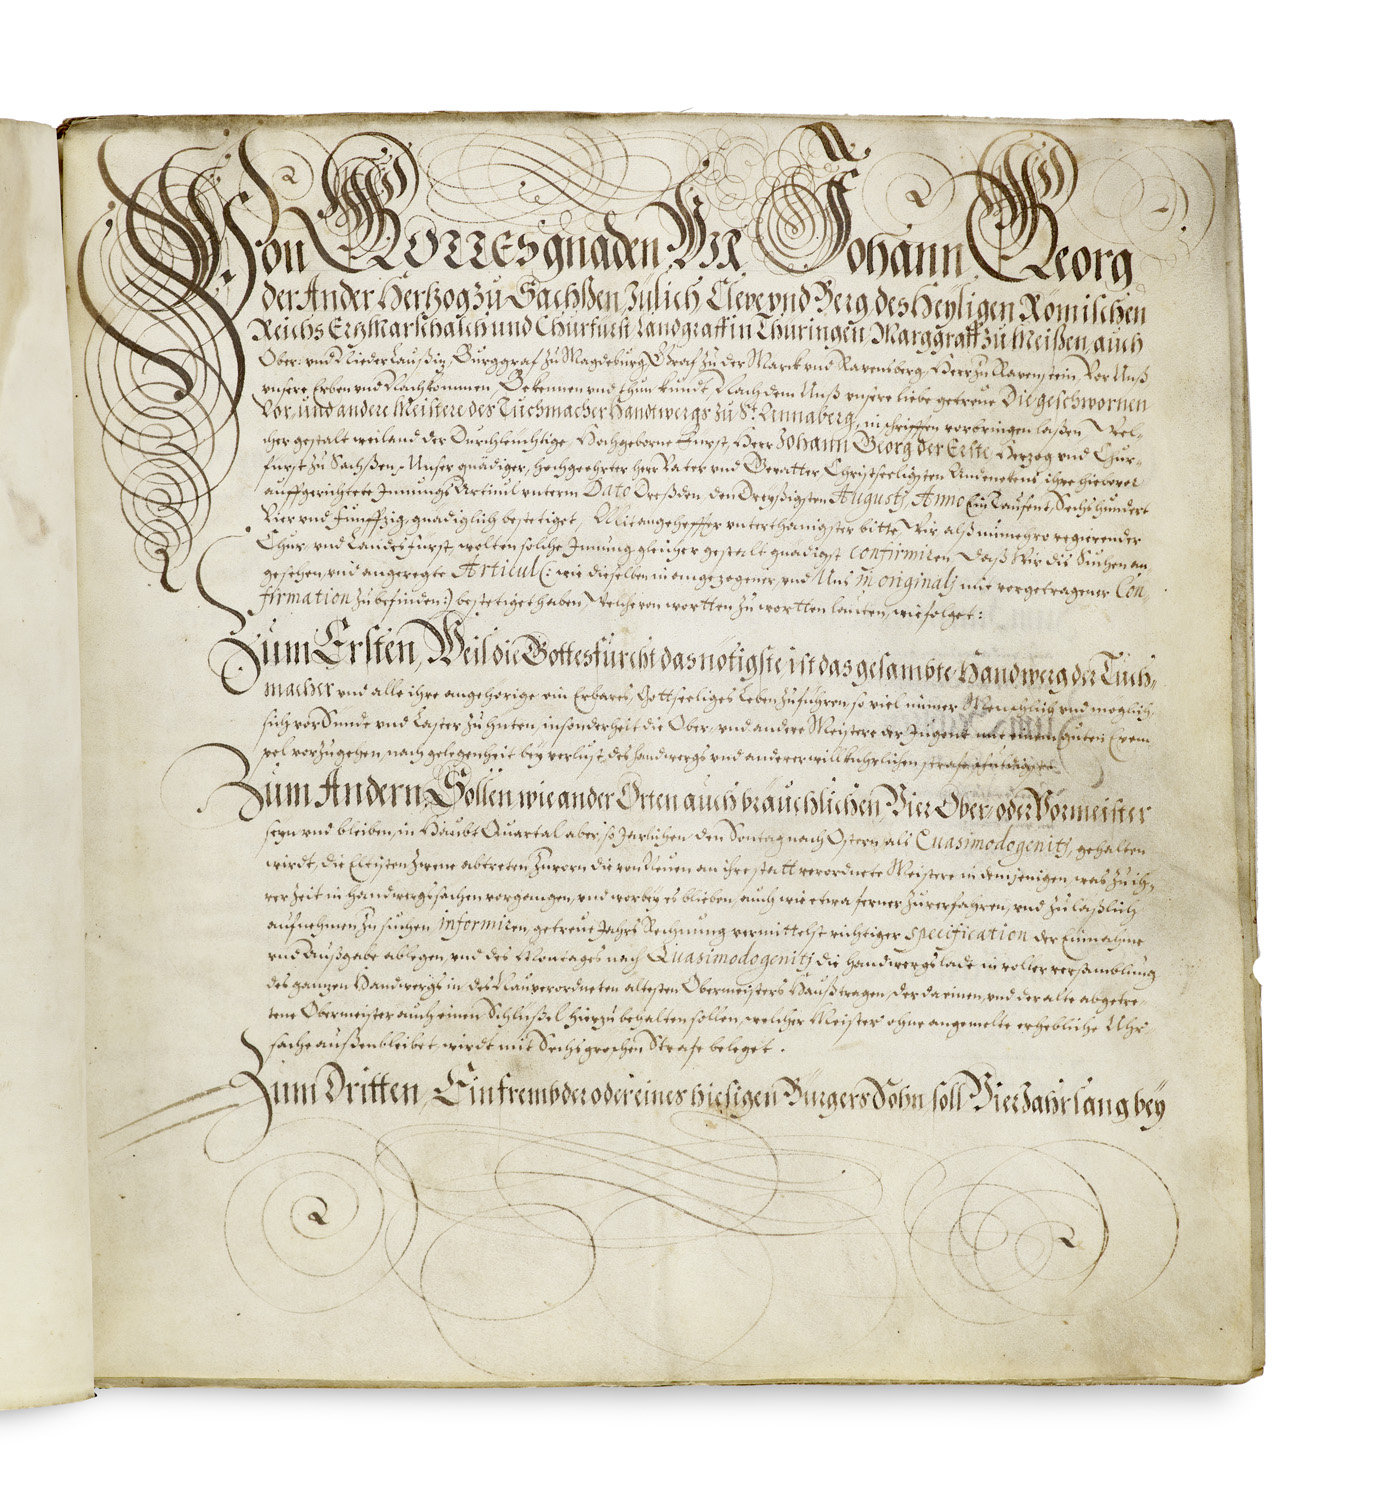 Von GOTTES gnaden Wir Johann Georg
der Ander Hertzog zu Sachßen Jülich Cleve vnd Berg, des Heyligen Römischen
Reichs Ertzmarschalch und Churfürst, Landgraff in Thüringen, Marggraff zu Meißen, auch
Ober: vnd Nieder Laußiz, Burggraf zu Magdeburg, Graf zu der Marck vnd Ravensberg, Herr zu Ravenstein, Vor Unß
vnsere Erben vnd Nachkommen, Bekennen vnd thun kunde, Nach dem Unß vnsere liebe getreue Die geschwornen
Vor, und andere Meistere des Tuchmacher Handtwergs zu St. Annaberg, in schrifften vorbringen laßen, Wel-
cher gestalt weiland der Durchleuchtige, Hochgeborne Fürst, Herr Johann Georg der Erste, Herzog vnd Chur-
fürst zu Sachßen, Unser gnädiger, hochgeehrter herr Vater vnd Gevatter Christseeligsten Andenckens ihre hiebevor
auffgerichtete Innungs Articul vnterm Dato Dreßden, den Dreyßigsten Augustj, Anno Ein Tausent, Sechshundert
Vier vnd funffzig, gnädiglich bestetiget, Mit angeheffter vnterthänigster bitte, Wir alß nunmehro regierender
Chur, vnd Landesfürst, wolten solche Innung gleicher gestalt gnädigst confirmiren, Daß Wir dis Suchen an,
gesehen, vnd angeregte Articul (: wie dieselben in angezogener, vnd Uns in originalj mit vorgetragener Con,
firmation zu befinden :) bestetiget haben, Welche von wortten zu wortten lauten, wie folget:
Zum Ersten, Weil die Gottesfürcht das nötigste, ist das gesambte Handwerg der Tuch,
macher vnd alle ihre angehörige ein Erbares, Gottseeliges Leben zuführen, so viel immer Menschlich vnd möglich,
sich vor Sünde vnd Laster zu hüten, insonderheit die Ober, vnd andere Meistere der Jugent mit einem guten Exem
pel vorzugehen, nach gelegenheit bey verlust des handwergs vnd anderer willkührlichen strafe
Zum Andern, Sollen wie ander Orten auch bräuchlichen, Vier Ober, oder Vormeister
seyn vnd bleiben, in Haubt Quartal aber, so Järlichen den Sontag nach Ostern, als Quasimodogenitj, gehalten
wirdt, die Eltisten Zwene abtreten, Zuvorn die von Neuen an ihre statt verordnete Meistere in demjenigen, was zu ih,
rer Zeit in handwergssachen vorgangen, vnd worbey es blieben, auch wie etwa ferner zuverfahren, vnd zuläßlich
aufnehmen zu suchen informiren, getreue Jahrs Rechnung vermittelst richtiger specification der Einnahme
vnd Außgabe ablegen, vnd des Montages nach Quasimodogenitj die handwergslade in voller versamblung
des ganzen Handwergs in des Neuverordneten ältesten Obermeisters Hauß tragen, der da einen, vnd der alte abgetre
tene Obermeister auch einen Schlüßel hierzu behalten sollen, welcher Meister ohne angemelte erhebliche Uhr
sache außenbleibet, wirdt mit Sechs groschen Strafe beleget.
Zum Dritten, Ein frembder oder eines hiesigen Bürgers Sohn, soll Vier Jahr lang bey